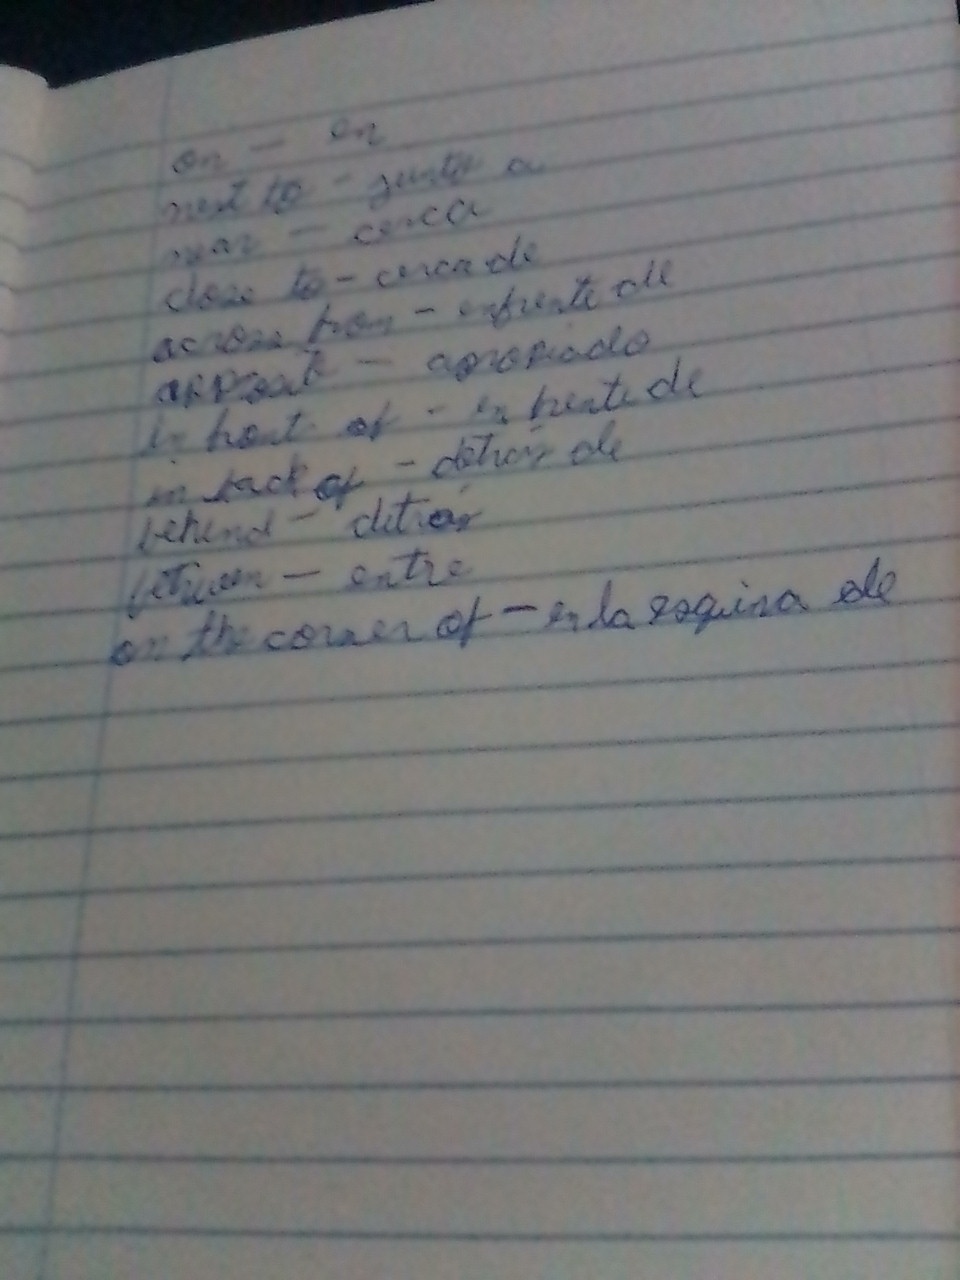 on - en
next to - junto a
near - cerca
close to - cerca de
across from - enfrente de
- apropiado
in front of - enfrente de
in back of - detrás de
behind - detrás
between - entre
on the corner of - en la esquina de